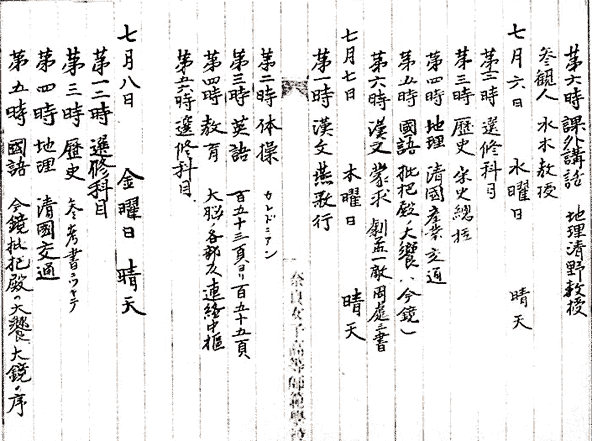 第六時 課外講話 地理清野教授
参観人 水木教授
七月六日 水曜日 晴天
第一二時 選修科目
第三時 歴史 宋史總括
第四時 地理 清國産業交通
第五時 國語 批把殿ノ大饗(今鏡)
第六時 漢文 蒙求 劇孟一敵 周處三害
七月七日 木曜日 晴天
第一時 漢文 燕歌行
第二時 体操 カレドニアン
第三時 英語 百五十三頁ヨリ百五十五頁
第四時 教育 大脳ノ各部及連絡中樞
第五六時 選修科目
七月八日 金曜日 晴天
第一二時 選修科目
第三時 歴史 参考書ニツキテ
第四時 地理 清國交通
第五時 國語 今鏡批把殿ノ大饗、大鏡ノ序
奈良女子高等師範學校